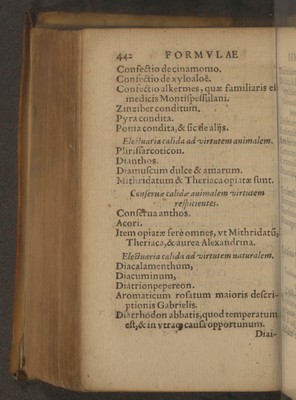 442 FORMVLAE
Confectio de cinamomo.
Confectio de xyloaloë.
Confectio alkermes, quæ familiaris est
medicis Montispessulani.
Zinziber conditum.
Pyra condita.
Poma condita, & sic de alijs.
Electuaria calida ad virtutem animalem.
Plirissarcoticon.
Dianthos.
Diamuscum dulce & amarum.
Mithridatum & Theriaca opiatæ sunt.
Conseruæ calidæ animalem virtutem
respicientes.
Conserua anthos.
Acori.
Item opiatæ ferè omnes, vt Mithridatũ,
Theriaca, & aurea Alexandrina.
Electuaria calida ad virtutem naturalem.
Diacalamenthum,
Diacuminum,
Diatrionpepereon.
Aromaticum rosatum maioris descri-
ptionis Gabrielis.
Diatrhodon abbatis, quod temperatum
est, & in vtraq; causa opportunum.
Diai-